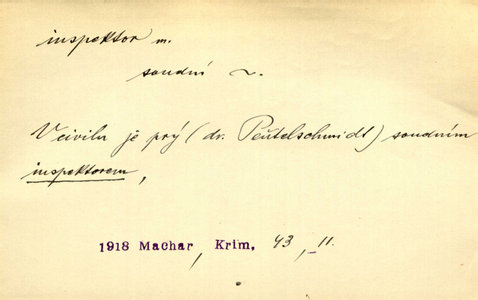 inspektor m.
soudní ~.
V civilu je prý (dr. Peütelschmidt) soudním
inspektorem,
1918 Machar, Krim, 43, 11.